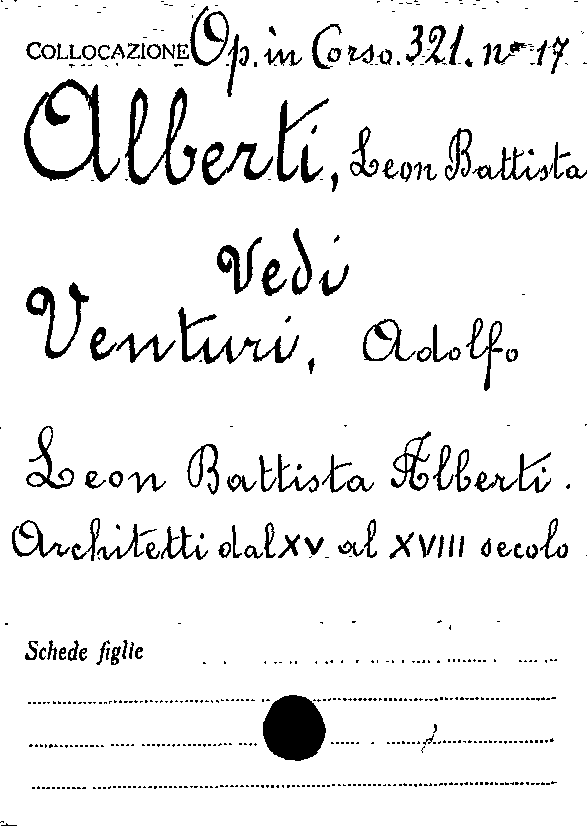 COLLOCAZIONE Op. in Corso. 321. nº 17
Alberti, Leon Battista
Vedi
Venturi, Adolfo
Leon Battista Alberti.
Architetti dal XV al XVIII secolo
Schede figlie